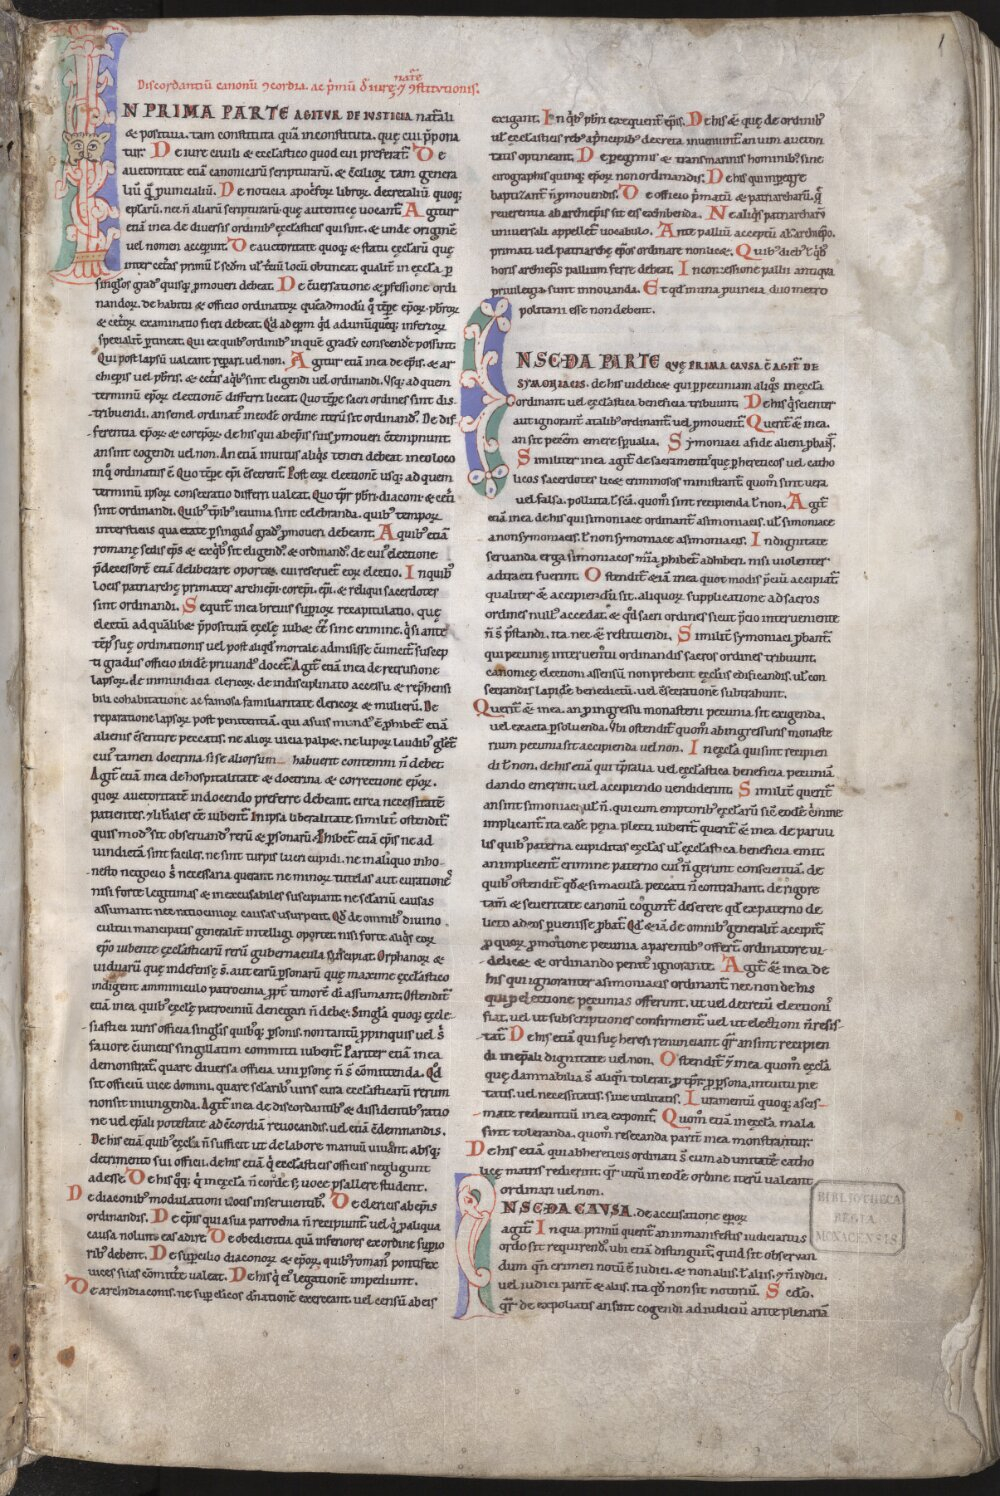 1
Discordantiū canonū ꝯcordia. ac p̄mū d̄ iure nat̄e ⁊ ꝯstitutionis.
IN PRIMA PARTE AGITUR DE IUSTICIA. nat̄ali
& positiua. tam constituta quā inconstituta. quę cui p̄pona
tur. De iure ciuili & eccl̄astico quod cui preferat̄. De
auctoritate etiā canonicarū scripturarū. & c̄cilioꝝ tam genera
liū q̄ ꝓuincialiū. De noticia apocrifoꝝ libroꝝ. decretaliū quoq;
ep̄larū. nec n̄ aliarū scripturarū. quę autentice uocant̄. Agitur
etiā inea de diuersis ordinib; eccl̄asticis qui sint. & unde originē
uel nomen accepīnt. De auctoritate quoq; & statu eccl̄arū quę
inter cet̄as primū l̄ sc̄dm ul̄ t̄ciū locū obtineat. qualit̄ in eccl̄a ꝑ
singlos grad; quisq; ꝓmoueri debeat. De c̄uersatione & ꝓfessione ordi
nandoꝝ. de habitu & officio ordinatoꝝ quēadmodū q̄ t̄pre ep̄oꝝ. pb̄roꝝ
& cet̄oꝝ examinatio fieri debeat. Qd̄ ad ep̄m qd̄ ad unūquēq; inferioꝝ
specialit̄ ꝑtineat. Qui ex quib; ordinib; in quē gradū conscende possunt.
Qui post lapsū ualeant reꝑari. uel non. Agitur etiā inea de ep̄is. & ar
chiep̄is uel pb̄ris. & cet̄is a q̇b; sint eligendi uel ordinandi. Usq; ad quem
terminū ep̄oꝝ electionē differri liceat. Quo t̄pre sacri ordines sint dis-
tribuendi. an semel ordinat; in eodē ordine iterū sit ordinand;. De dif
ferentia ep̄oꝝ. & corep̄oꝝ. de his qui ab ep̄is suis ꝓmoueri c̄tempnunt
an sint cogendi uel non. An etiā inuitus aliq̇s teneri debeat in eo loco
in q̇ ordinatus ē. Quo t̄pre ep̄i c̄secrent̄. Post eoꝝ electionē usq; ad quem
terminū ipsoꝝ consecratio differri ualeat. Quo t̄pr̄ pb̄ri. diaconi. & cet̄i
sint ordinandi. Quib; t̄prib; ieiunia sint celebranda. quib; tempoꝝ
intersticiis qua etate ꝑ singulos grad; ꝓmoueri debeant. A quib; etiā
romanę sedis ep̄s & ex q̇b; sit eligend;. & ordinand;. de cui; electione
p̄decessorē etiam deliberare oportet. cui reseruet̄ eoꝝ electio. In quib;
locis patriarchę primates archiep̄i. corep̄i. ep̄i. & reliqui sacerdotes
sint ordinandi. Sequit̄ inea breuis suꝑioꝝ recapitulatio. quę
electū ad qualibet p̄posituram eccl̄ę iubet ēē sine crimine. q̄ si ante
tēp; suę ordinationis uel post aliq̇d mortale admisisse c̄uincit̄ suscep
ti gradus officio ibidē priuand; docet̄. Agit̄ etiā inea de retrusione
lapsoꝝ. de inmundicia clericoꝝ. de indisciplinato accessu & rep̄hensi
bili cohabitatione ac famosa familiaritate clericoꝝ & mulierū. De
reparatione lapsoꝝ post penitentiā. qui a suis mund; ē ꝓhibet̄ etiā
alienis c̄sentire peccatis. ne alioꝝ uicia palpet. ne lupoꝝ laudib; glet̄
cui; tamen doctrina si se aliorsum habuerit contemni n̄ debet.
Agit̄ etiā inea de hospitalitate & doctrina & correctione ep̄oꝝ.
quoꝝ auctoritatē in docendo preferre debeant. circa necessitatē
patientes. ⁊ lib̄ales ēē iubent̄. In ipsa liberalitate similit̄ ostendit̄
quis mod; sit obseruand; rerū & ꝑsonarū. Phibet̄ etiā ep̄is ne ad
uindictā sint faciles. ne sint turpis lucri cupidi. ne in aliquo inho-
nesto negocio s̄ necessaria querant. ne minoꝝ tutelas aut curationes
nisi forte legitimas & inexcusabiles suscipiant. ne sc̄larū causas
assumant. nec ratiociniorꝝ causas usurpent. Qd̄ de omnib; diuino
cultui mancipatis generalit̄ intelligi oportet. nisi forte aliq̇s eoꝝ
ep̄o iubente eccl̄asticarū rerū gubernacula suscipiat. Orphanoꝝ &
uiduarū quę indefensę s̄. aut earū ꝑsonarū quę maxime eccl̄astico
indigent amminiculo patrocinia. ꝓpt̄ timorē di assumant. Ostendit̄
etiā inea. quib; eccl̄ę patrociniū denegari n̄ debet. Singl̄a quoq; eccle
siastici iuris officia singlis quib;q; ꝑsonis. non tantū ꝓpinquis uel s̄
fauore c̄iunctis singillatim committi iubent̄. Pariter etiā inea
demonstrat̄. quare diuersa officia uni ꝑsonę n̄ s̄ cōmittenda. Qd̄
sit officiū uice domini. quare sc̄larib; uiris cura eccl̄asticarū rerum
non sit iniungenda. Agit̄ inea de discordantib; & dissidentib; ratio
ne uel ep̄ali potestate ad c̄cordiā reuocandis. uel etiā c̄demnandis.
De his etiā quib; eccl̄a n̄ sufficit ut de labore manuū uiuant. absq;
detrimento sui officii. de his etiā q̇ eccl̄asticis officiis negligunt
adesse. De his q̇q; q̇ in eccl̄a n̄ corde s̄; uoce psallere student.
De diaconib; modulationi uocis inseruientib;. De clericis ab ep̄is
ordinandis. De ep̄is qui a sua parrochia n̄ recipiunt̄ uel q̇ p̄ aliqua
causa nolunt eas adire. De obedientia quā inferiores ex ordine suꝑio
rib; debent. De suꝑcilio diaconoꝝ & ep̄oꝝ. quib; roman; pontifex
uices suas cōmitt̄e ualeat. De his q̇ ei; legationē impediunt.
De archidiaconis. ne suꝑ cl̄icos d̄nationē exerceant. uel censū ab eis
exigant. In q̇b; pb̄ri exequent̄ ep̄is. De his & quę de ordinib;
ul̄ eccl̄asticis reb; a principib; decreta inueniunt̄ an uim auctori
tatis optineant. De pegrinis & transmarinis hominib; sine
cirographis quinq; ep̄oꝝ non ordinandis. De his qui in pegre
baptizant̄ n̄ ꝓmouendis. De officio p̄matū & patriarcharū. q̄
reuerentia ab archiep̄is sit eis exhibenda. Ne aliq̇s patriarcharū
uniuersali appellet̄ uocabulo. Ante palliū acceptū al̄ archiep̄o.
primati uel patriarchę ep̄os ordinare non licet. Quib; dieb; l̄ q̇b;
horis archiep̄is pallium ferre debeat. In concessione pallii antiqua
priuilegia sunt innouanda. Et qd̄ in una ꝓuincia duo metro
politani esse non debent.
IN SC̄DA PARTE QUĘ PRIMA CAUSA Ē AGIT̄ DE
SYMONIACIS. de his uidelicet qui ꝑ pecuniam aliq̇s in eccl̄a
ordinant. uel eccl̄astica beneficia tribuunt. De his q̇ scienter
aut ignorant̄ a talib; ordinant̄. uel ꝓmouent̄. Querit̄ & inea.
an sit pecēm emere sp̄ualia. Symoniaci a fide alieni ꝓbant̄.
Similiter inea agit̄ de sacramentis que ꝑ hereticos uel catho
licos sacerdotes licet criminosos ministrant̄. quom̄ sint uera
uel falsa. polluta l̄ sc̄ā. quom̄ sint recipienda l̄ non. Agit̄
etiā inea de his qui simoniace ordinant̄ a simoniacis. ul̄ simoniace
a non symoniacis. l̄ non symoniace a simoniacis. In dignitate
seruanda erga simoniacos mīa ꝓhibet̄ adhiberi. nisi uiolenter
adtracti fuerint. Ostendit̄ & iā inea quot modis p̄ciū accipiat̄.
qualiter & accipiendū sit. aliquoꝝ supplicatione ad sacros
ordines null; accedat. & qd̄ sacri ordines sicut p̄cio interueniente
n̄ s̄ p̄standi. ita nec & restituendi. Similit̄ symoniaci ꝓbant̄
qui pecunię interuentu ordinandis sacros ordines tribuunt.
canonicę electioni assensū non prebent eccl̄iis edificandis. ul̄ con
secrandis lapide benedictū. uel c̄secrationē subtrahunt.
Querit̄ & inea. an ꝓ ingressu monasterii pecunia sit exigenda.
uel exacta ꝑsoluenda. Ubi ostendit̄ quom̄ ab ingressuris monaste
rium pecunia sit accipienda uel non. In eccl̄a qui sint recipien
di l̄ non. de his etiā qui t̄pralia uel eccl̄astica beneficia pecuniā
dando emerint. uel accipiendo uendiderint. Similit̄ querit̄
an sint simoniaci. ul̄ n̄. qui cum emptorib; eccl̄arū sui ēodē c̄rimine
implicant̄. ita eadē pena plecti iubent̄ querit̄ & inea de paruu
lis quib; paterna cupiditas eccl̄as ul̄ eccl̄astica beneficia emit.
an implicent̄ crimine paterno cui; n̄ gerunt conscientiā. de
quib; ostendit̄ qd̄ & si macula. peccati n̄ contrahant. de rigore
tam̄ & seueritate canonū cogunt̄ deserere qd̄ ex paterno de
licto ad eos ꝑuenisse ꝓbat̄. Qd̄ & iā de omnib; generalit̄ accipit̄
ꝓ quoꝝ ꝓmotione pecunia a parentib; offert̄. ordinatore ui-
delicet & ordinando penit; ignorante. Agit̄ & inea de
his qui ignoranter a simoniacis ordinant̄. nec non de his
qui ꝓ electione pecunias offerunt. ut uel decretū electionis
fiat. uel ut subscriptiones confirment̄. uel ut electioni n̄ resis-
tat̄. De his etiā qui suę heresi renunciant. qr̄ an sint recipien
di in ep̄ali dignitate uel non. Ostendit̄ ⁊ inea quom̄ eccl̄a
quę damnabilia s̄ aliqn̄ tolerat. ꝓ t̄pr̄. ꝓ ꝑsona. intuitu pie
tatis. uel necessitatis. siue utilitatis. Iuramentū quoq; a scis-
mate redeuntiū inea exponit̄. Quom̄ etiā in eccl̄a mala
sint toleranda. quom̄ resecanda parit̄ inea monstrantur.
De his etiā qui ab hereticis ordinati s̄ cum ad unitatē catho
licę matris redierint. qr̄ utrū in eodē ordine iterū ualeant
ordinari uel non.
IN SC̄DA CAUSA. de accusatione ep̄oꝝ
agit̄. In qua primū querit̄ an in manifestis iudiciarius
ordo sit requirend;. ubi etiā distinguit̄. quid sit obseruan
dum. qn̄ crimen notū ē iudici. & non aliis. l̄ aliis. ⁊ n̄ iudici.
uel iudici parit̄ & aliis. ita qd̄ non sit notoriū. Sc̄do.
qr̄ de expoliatis an sint cogendi ad iudiciū ante plenariā
BIBLIOTHECA
REGIA
MONACENSIS